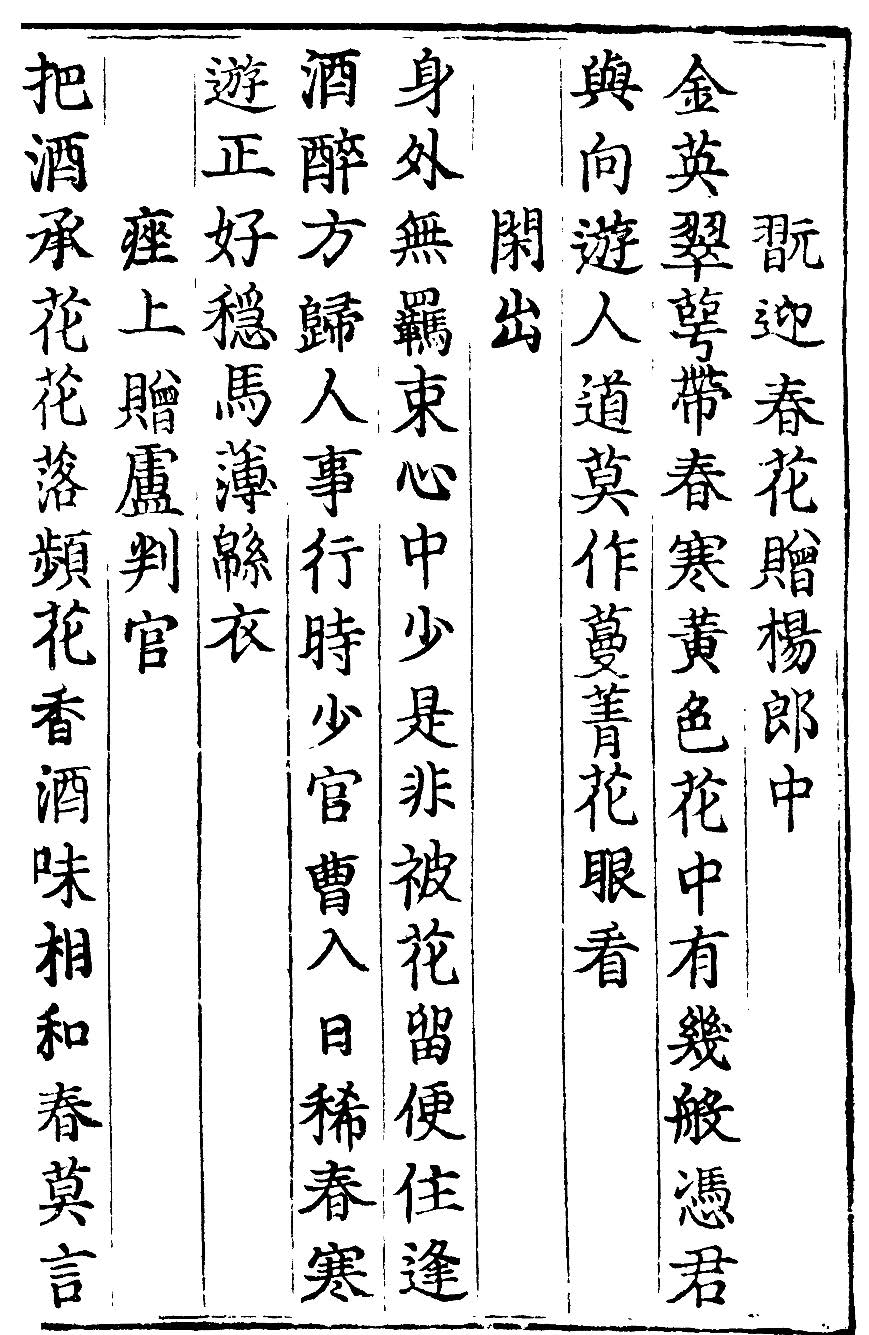 翫迎春花贈楊郎中
金英翠萼帶春寒黃色花中有幾般憑君
與向遊人道莫作蔓菁花眼看
閑出
身外無羈束心中少是非被花留便住逢
酒醉方歸人事行時少官曹入日稀春寒
遊正好穩馬薄緜衣
座上贈盧判官
把酒承花花落頻花香酒味相和春莫言